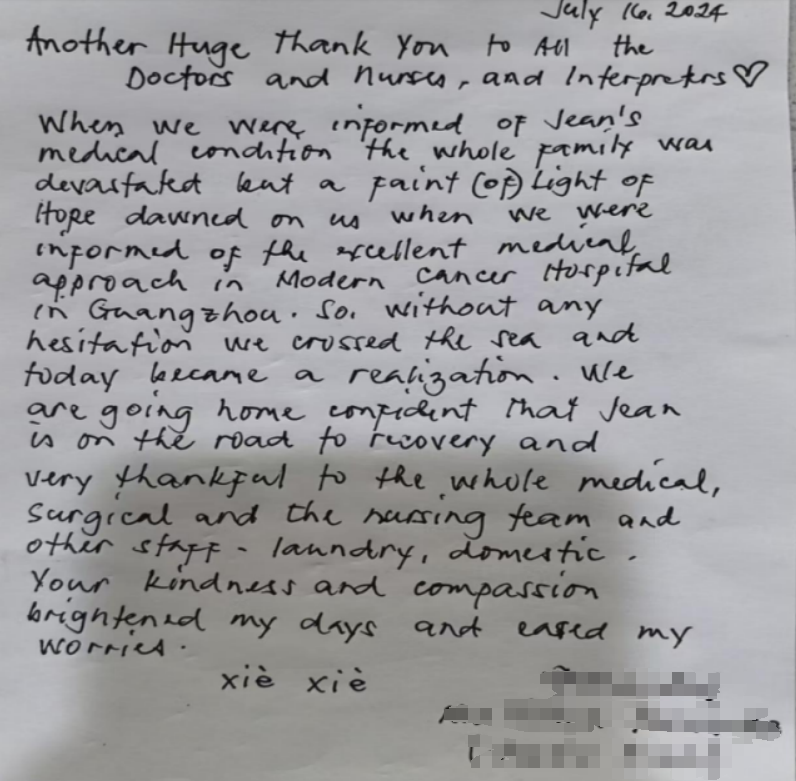 July 16, 2024
Another Huge Thank You to All the
Doctors and Nurses, and Interpreters♡
When we were informed of Jean's
medical condition the whole family was
devastated but a faint (of) Light of
Hope dawned on us when we were
informed of the excellent medical
approach in Modern Cancer Hospital
in Guangzhou. So, without any
hesitation we crossed the sea and
today became a realization. We
are going home confident that Jean
is on the road to recovery and
very thankful to the whole medical,
surgical and the nursing team and
other staff - laundry, domestic.
Your kindness and compassion
brightened my days and eased my
worries.
xiè xiè